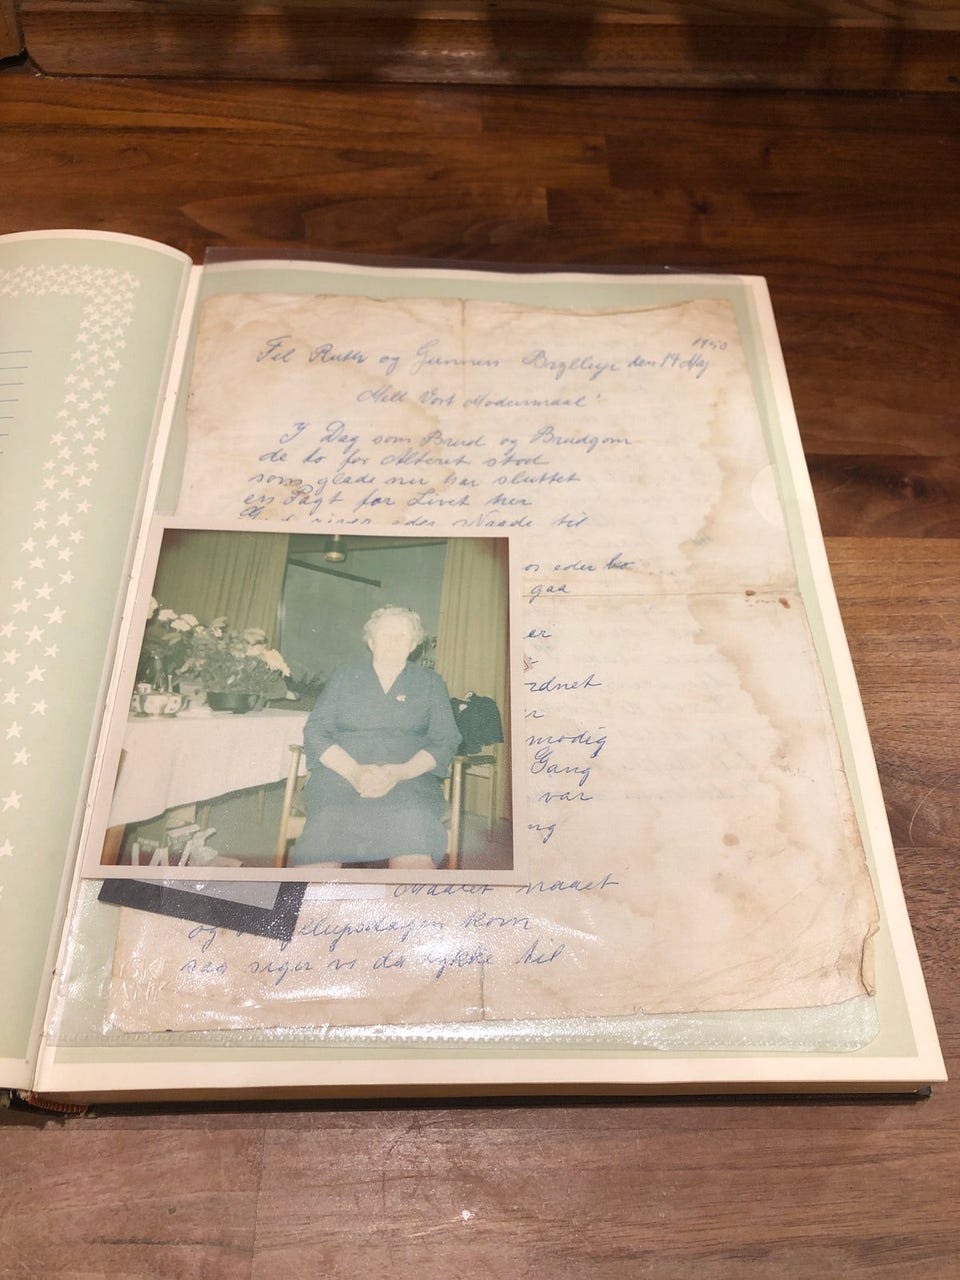 1950
Til Ruth og Gunners Bryllup den 17 Maj
Mell Vort Modersmaal
I Dag som Brud og Brudgom
de to for Alteret stod
som glade nu har sluttet
en Pagt for Livet her
eder Naade til
os eder bo
gaa
er
rdnet
r
modig
Gang
var
ng
Maalet naaet
og llupsdagen kom
saa siger vi da lykke til